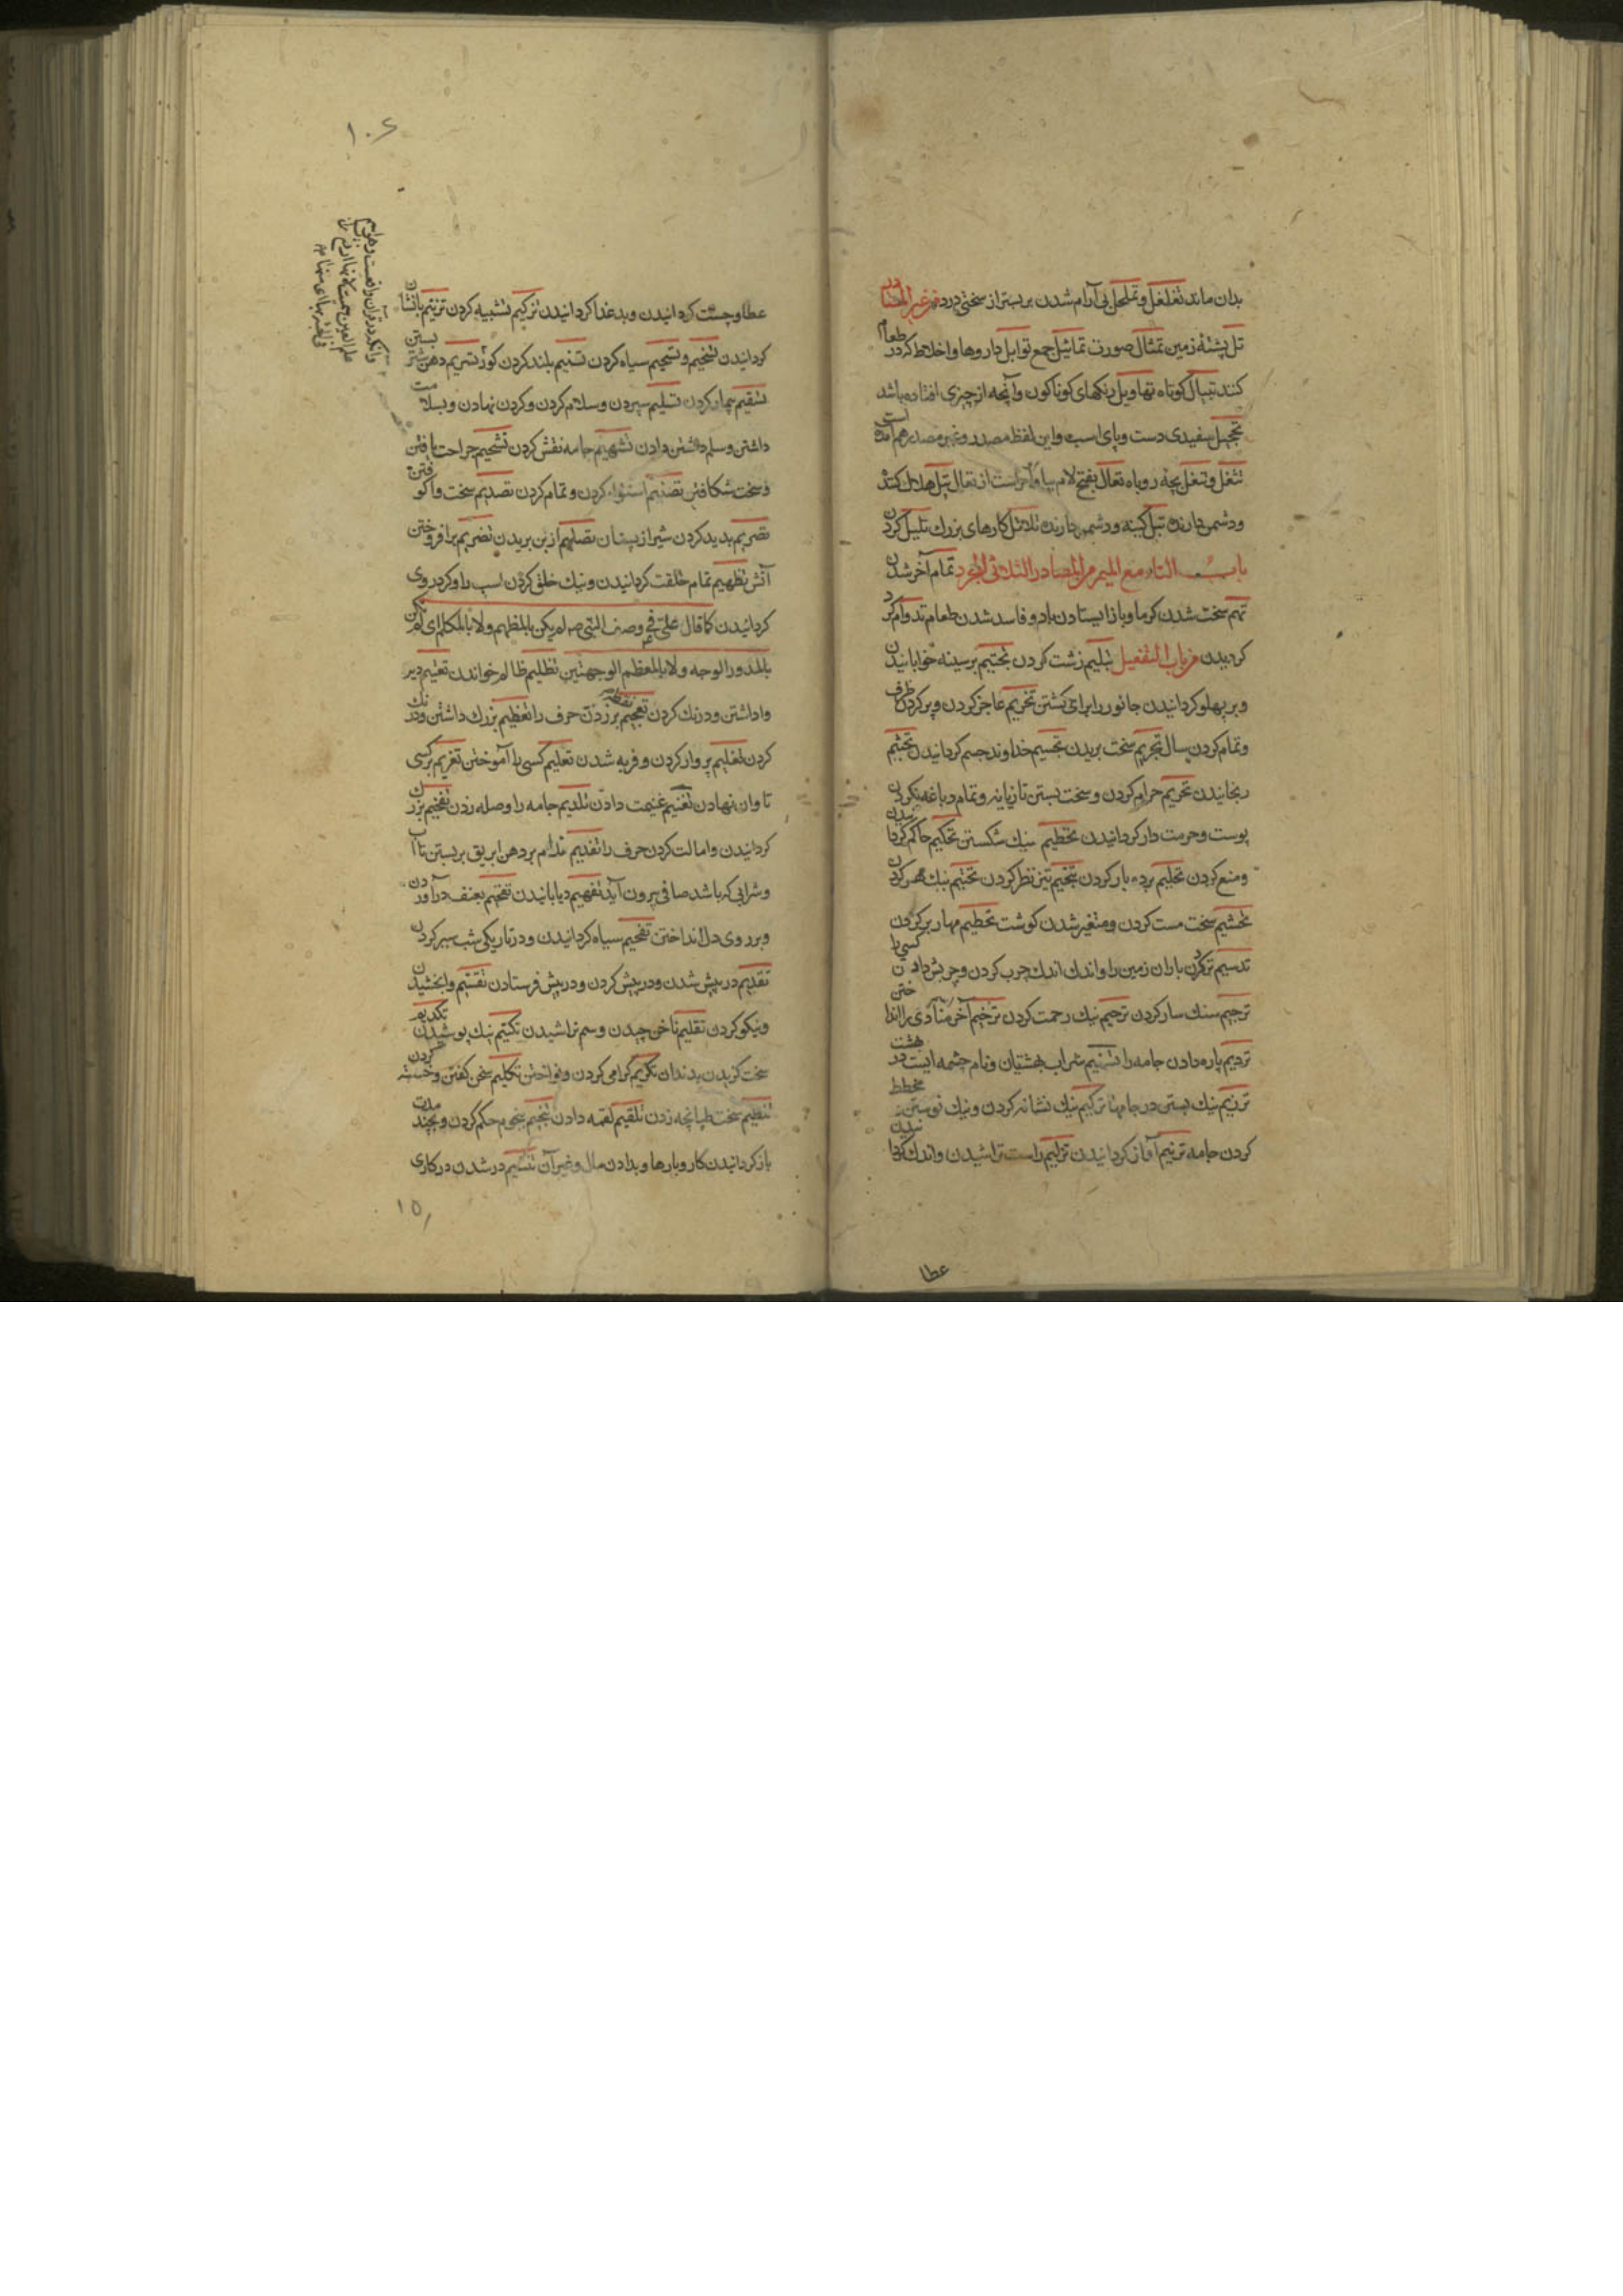 بدان ماند تغلغل و تململ بی آرام شدن بر بستر از سختی درد من غیر المصادر
تل پشتهٔ زمین تمثال صورت تماثیل جمع توابل داروها و اخلاط که در طعام
کنند تنبال کوتاه تهاویل رنکهای کوناکون و آنچه از چیزی افتاده باشد
تحجیل سفیدی دست و پای اسب و این لفظ مصدر و غیر مصدر هم آمده است
تتفل و تتفل بچه روباه تعال بفتح لام بیا و امر است از تعالی تبل هلاک کننده
و دشمن دارنده تبل کینه و دشمن دارنده تلاتل کارهای بزرک تلیل کردن
باب التاء مع المیم من المصادر الثلاثی المجرد تمام آخر شدن
تهم سخت شدن کرما و باز ایستادن باد و فاسد شدن طعام تدوام کرد
کردیدن من باب التفعیل تبلیم زشت کردن تجثیم بر سینه خوابانیدن
و بر پهلو کردانیدن جانور را برای کشتن تخریم عاجز کردن و پر کردن ظرف
و تمام کردن سال تجریم سخت بریدن تجسیم خداوند جسم کردانیدن تجشیم
رنجانیدن تحریم حرام کردن و سخت بستن تازیانه و تمام دباغه نکردن
پوست و حرمت دار کردانیدن تحطیم نیک شکستن تحکیم حاکم کردانیدن
و منع کردن تحلیم برده بار کردن تحمیم تیز نظر کردن تختیم نیک مهر کردن
تخشیم سخت مست کردن و متغیر شدن کوشت تخطیم مهار بر کردن
تدسیم تر کردن باران زمین را و اندک اندک چرب کردن و چربش دادن کسی را
ترجیم سنک سار کردن ترحیم نیک رحمت کردن ترخیم آخر منادی را انداختن
تردیم پاره دادن جامه را تسنیم شراب بهشتیان و نام چشمه ایست در بهشت
ترزیم نیک بستن در جامها ترقیم نیک نشانه کردن و نیک نوشتن مخطط
کردن جامه ترنیم آواز کردانیدن تزلیم راست تراشیدن و اندک کردانیدن
عطا
۱۰۶
عطا و چست کردانیدن و بد غذا کردانیدن تزکیم تشبیه کردن تزنیم با نشان
کردانیدن تسخیم و تسحیم سیاه کردن تسنیم بلند کردن کور تشریم دهن شتر بستن
تسقیم بیمار کردن تسلیم سپردن و سلام کردن و کردن نهادن و بسلامت
داشتن و سلم داشتن دادن تسهیم جامه نقش کردن تشحیم جراحت یافتن
و سخت شکافتن تصتیم استوار کردن و تمام کردن تصدیم سخت وا کوفتن
تصریم بدید کردن شیر از پستان تصلیم از بن بریدن تضریم بر افروختن
آتش تطهیم تمام خلقت کردانیدن و نیک خلق کردن اسب را و کرد روی
کردانیدن کما قال علی فی وصف النبی صلم لم یکن بالمطهم و لا بالمکلثم ای لم یکن
بالمدور الوجه و لا بالمعظم الوجهتین تظلیم ظالم خواندن تعتیم دیر
وا داشتن و درنک کردن تعجیم نقطه بر زدن حرف را تعظیم بزرک داشتن و درنک
کردن تعلیم پروار کردن و فربه شدن تعلیم کسی را آموختن تغریم بر کسی
تاوان نهادن تغنیم غنیمت دادن تلدیم جامه را وصله زدن تفخیم بزرک
کردانیدن و امالت کردن حرف را تفدیم فدام بر دهن ابریق بر بستن تا آب
و شرابی که باشد صافی بیرون آید تفهیم دریابانیدن تقحیم بعنف در آوردن
و بر روی در انداختن تفحیم سیاه کردانیدن و در تاریکی شب سیر کردن
تقدیم در پیش شدن و در پیش کردن و در پیش فرستادن تقسیم وا بخشیدن
و نیکو کردن تقلیم ناخن چیدن و سم تراشیدن تکتیم نیک پوشیدن تکدیم
سخت کزیدن بدندان تکریم کرامی کردن و نواختن تکلیم سخن کفتن و خسته کردن
تلطیم سخت طپانچه زدن تلقیم لقمه دادن تنجیم بنجوم حکم کردن و بچند مدت
باز کردانیدن کار و بارها و بدادن مال و غیر آن تنسیم در شدن در کاری
۱۵